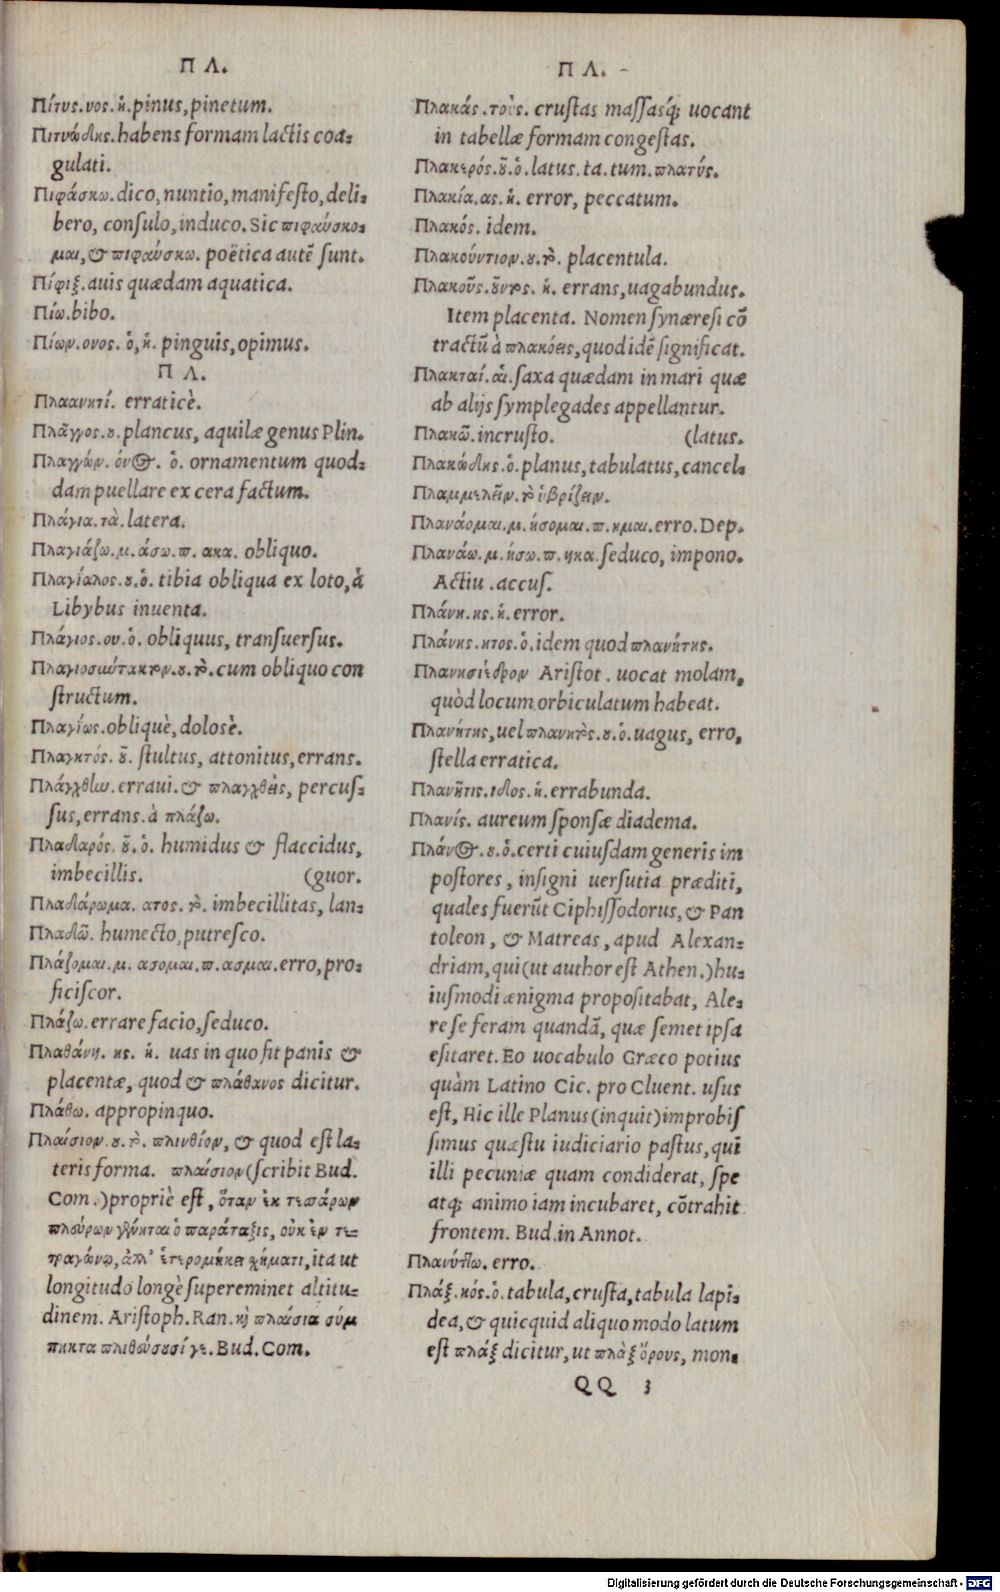 Π Λ.
Πίτυς.υος.ἡ.pinus,pinetum.
Πιτυώδης.habens formam lactis coa-
gulati.
Πιφάσκω.dico,nuntio,manifesto,deli-
bero, consulo,induco.Sic πιφαύσκο-
μαι,& πιφαύσκω. poëtica autē sunt.
Πίφιξ.auis quædam aquatica.
Πίω.bibo.
Πίων.ονος. ὁ,ἡ. pinguis,opimus.
Π Λ.
Πλαανητί. erraticè.
Πλᾶγγος.ου.plancus, aquilæ genus Plin.
Πλαγγών. όνος. ὁ. ornamentum quod-
dam puellare ex cera factum.
Πλάγια.τὰ.latera.
Πλαγιάζω.μ.άσω.π. ακα. obliquo.
Πλαγίαλος.ου.ὁ. tibia obliqua ex loto,à
Libybus inuenta.
Πλάγιος.ου.ὁ. obliquus, transuersus.
Πλαγιοσιύτακτον.ου.τὸ.cum obliquo con
structum.
Πλαγίως.obliquè,dolosè.
Πλαγκτός. οῦ. stultus, attonitus,errans.
Πλάγχθην. erraui.& πλαγχθεὶς, percus-
sus,errans.à πλάζω.
Πλαδαρός. οῦ. ὁ. humidus & flaccidus,
imbecillis. (guor.
Πλαδάρωμα. ατος. τὸ. imbecillitas, lan-
Πλαδῶ. humecto,putresco.
Πλάζομαι.μ. ασομαι.π.ασμαι.erro,pro-
ficiscor.
Πλάζω.errare facio,seduco.
Πλαθάνη. ης. ἡ. uas in quo fit panis &
placentæ, quod & πλάθανος dicitur.
Πλάθω. appropinquo.
Πλαίσιον.ου.τὸ. πλινθίον, & quod est la-
teris forma. πλαίσιον(scribit Bud.
Com.)propriè est, ὅταν ἐκ τεσσάρων
πλεύρων γένηται ὁ παράταξις, οὐκ ἐν τε-
τραγώνῳ,ἀλλ' ἑτερομήκει σχήματι,ita ut
longitudo longè supereminet altitu-
dinem. Aristoph.Ran.καὶ πλαίσια σύμ
πηκτα πλιθεύσουσί γε.Bud.Com.
Π Λ.
Πλακάς.τοὺς. crustas massasq́; uocant
in tabellæ formam congestas.
Πλακερός.οῦ.ὁ.latus.ta.tum.πλατύς.
Πλακία.ας.ἡ. error, peccatum.
Πλακός. idem.
Πλακούντιον.ου.τὸ. placentula.
Πλακοῦς.οῦντος. ἡ. errans,uagabundus.
Item placenta. Nomen synæresi cō
tractū à πλακόεις,quod idē significat.
Πλακταί.αἱ.saxa quædam in mari quæ
ab alijs symplegades appellantur.
Πλακῶ.incrusto. (latus.
Πλακώδης.ὁ.planus,tabulatus,cancel-
Πλαμμελεῖν.τὸ ὑβρίζειν.
Πλανάομαι.μ.ήσομαι.π.ημαι.erro.Dep.
Πλανάω.μ.ήσω.π.ηκα.seduco, impono.
Actiu.accus.
Πλάνη.ης.ἡ.error.
Πλάνης.ητος.ὁ.idem quod πλανήτης.
Πλανησίεδρον Aristot. uocat molam,
quòd locum orbiculatum habeat.
Πλανήτης,uel πλανητὸς.ου.ὁ.uagus, erro,
stella erratica.
Πλανῆτις.ιδος.ἡ.errabunda.
Πλανίς. aureum sponsæ diadema.
Πλάνος.ου.ὁ.certi cuiusdam generis im
postores, insigni uersutia præditi,
quales fuerūt Ciphissodorus,& Pan
toleon, & Matreas, apud Alexan-
driam,qui(ut author est Athen.)hu-
iusmodi ænigma propositabat, Ale-
re se feram quandā, quæ semet ipsa
esitaret.Eo uocabulo Græco potius
quàm Latino Cic. pro Cluent. usus
est, Hic ille Planus(inquit)improbis
simus quæstu iudiciario pastus,qui
illi pecuniæ quam condiderat, spe
atq; animo iam incubaret, cōtrahit
frontem. Bud.in Annot.
Πλανύττω. erro.
Πλάξ.κός.ὁ.tabula,crusta,tabula lapi-
dea,& quicquid aliquo modo latum
est πλάξ dicitur,ut πλὰξ ὄρους, mon-
QQ 3
Digitalisierung gefördert durch die Deutsche Forschungsgemeinschaft - DFG